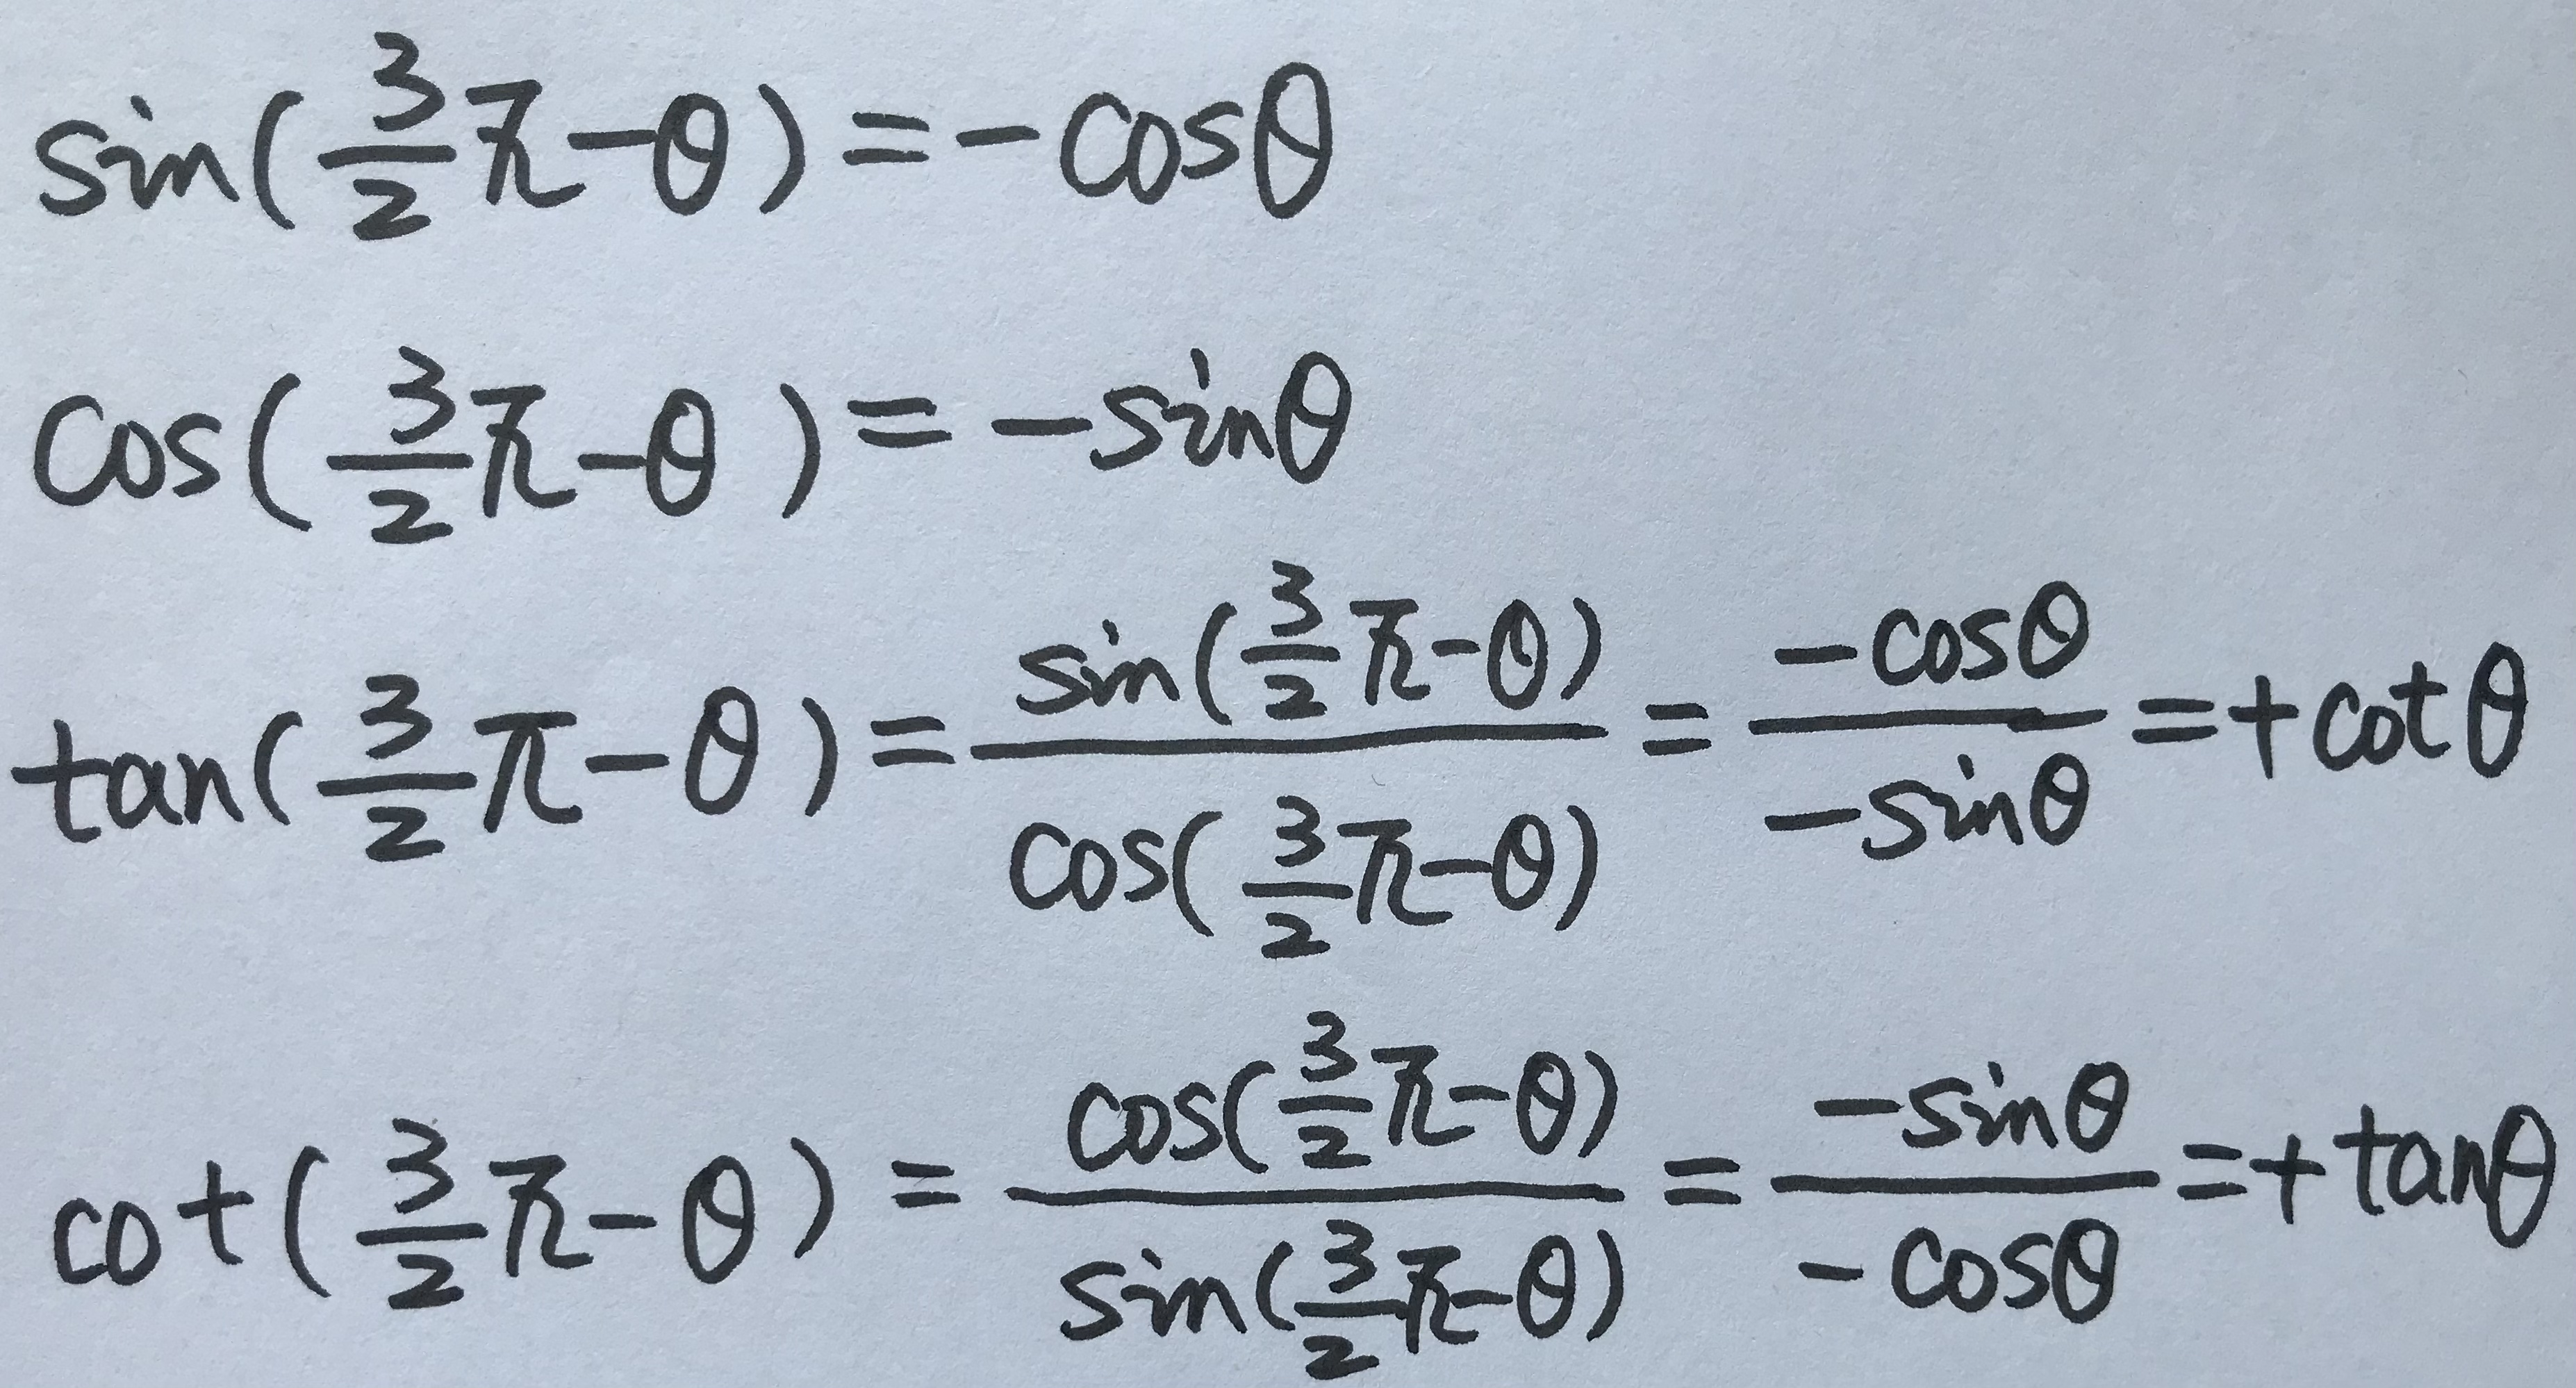 sin(3/2 π-θ)=-cosθ
cos(3/2 π-θ)=-sinθ
tan(3/2 π-θ)=sin(3/2 π-θ)/cos(3/2 π-θ)=-cosθ/-sinθ=+cotθ
cot(3/2 π-θ)=cos(3/2 π-θ)/sin(3/2 π-θ)=-sinθ/-cosθ=+tanθ